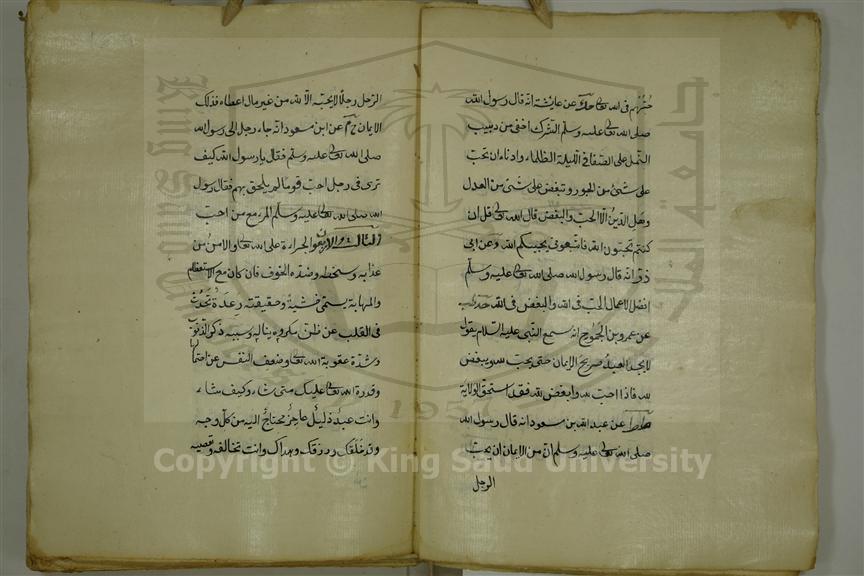 حبّهم في الله تعالى حك عن عايشة انه قال رسول الله
صلى الله تعالى عليه وسلم الشرك اخفى من دبيب
النمل على الصفا في الليلة الظلماء وادناه ان تحب
على شئ من الجور وتبغض على شئ من العدل
وهل الدين الا الحب والبغض قال الله تعالى قل ان
كنتم تحبون الله فاتبعوني يحببكم الله وعن ابي
ذر انه قال رسول الله صلى الله تعالى عليه وسلم
افضل الاعمال الحب في الله والبغض في الله
عن عمرو بن الجموح انه سمع النبي عليه السلام يقول
لا يجد العبد صريح الايمان حتى يحب لله ويبغض
لله فاذا احب لله وابغض لله فقد استحق الولاية
عن عبد الله بن مسعود انه قال رسول الله
صلى الله تعالى عليه وسلم ان من الايمان ان يحب
الرجل
الرجل رجلا لا يحبه الا لله من غير مال اعطاه فذلك
الايمان خ م عن ابن مسعود انه جاء رجل الى رسول الله
صلى الله تعالى عليه وسلم فقال يا رسول الله كيف
ترى في رجل احب قوما لم يلحق بهم فقال رسول
الله صلى الله تعالى عليه وسلم المرء مع من احب
الثالث والاربعون الجراءة على الله تعالى والامن من
عذابه وسخطه وضده الخوف فان كان مع الاستعظام
والمهابة يسمى خشية وحقيقته رعدة تحدث
في القلب عن ظن مكروه يناله وسببه ذكر الذنوب
وشدة عقوبة الله تعالى وضعف النفس عن احتمالها
وقدرة الله تعالى عليك متى شاء وكيف شاء
وانت عبد ذليل عاجز محتاج اليه من كل وجه
وقد خلقك ورزقك وهداك وانت تخالفه وتعصيه
King Saud University
جامعة الملك
1957
Copyright © King Saud University